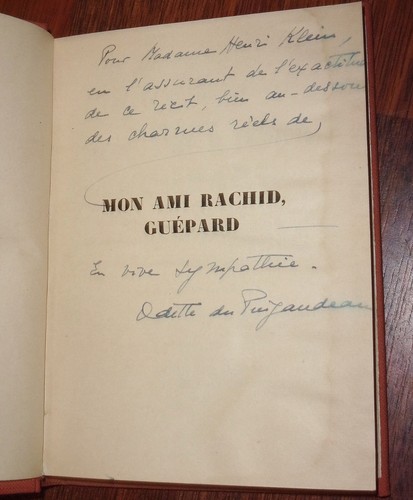 Pour Madame Henri Klein,
en l'assurant de l'exactitude
de ce récit, bien au-dessous
des charmes réels de,
MON AMI RACHID,
GUÉPARD
En vive sympathie.
Odette du Puigaudeau